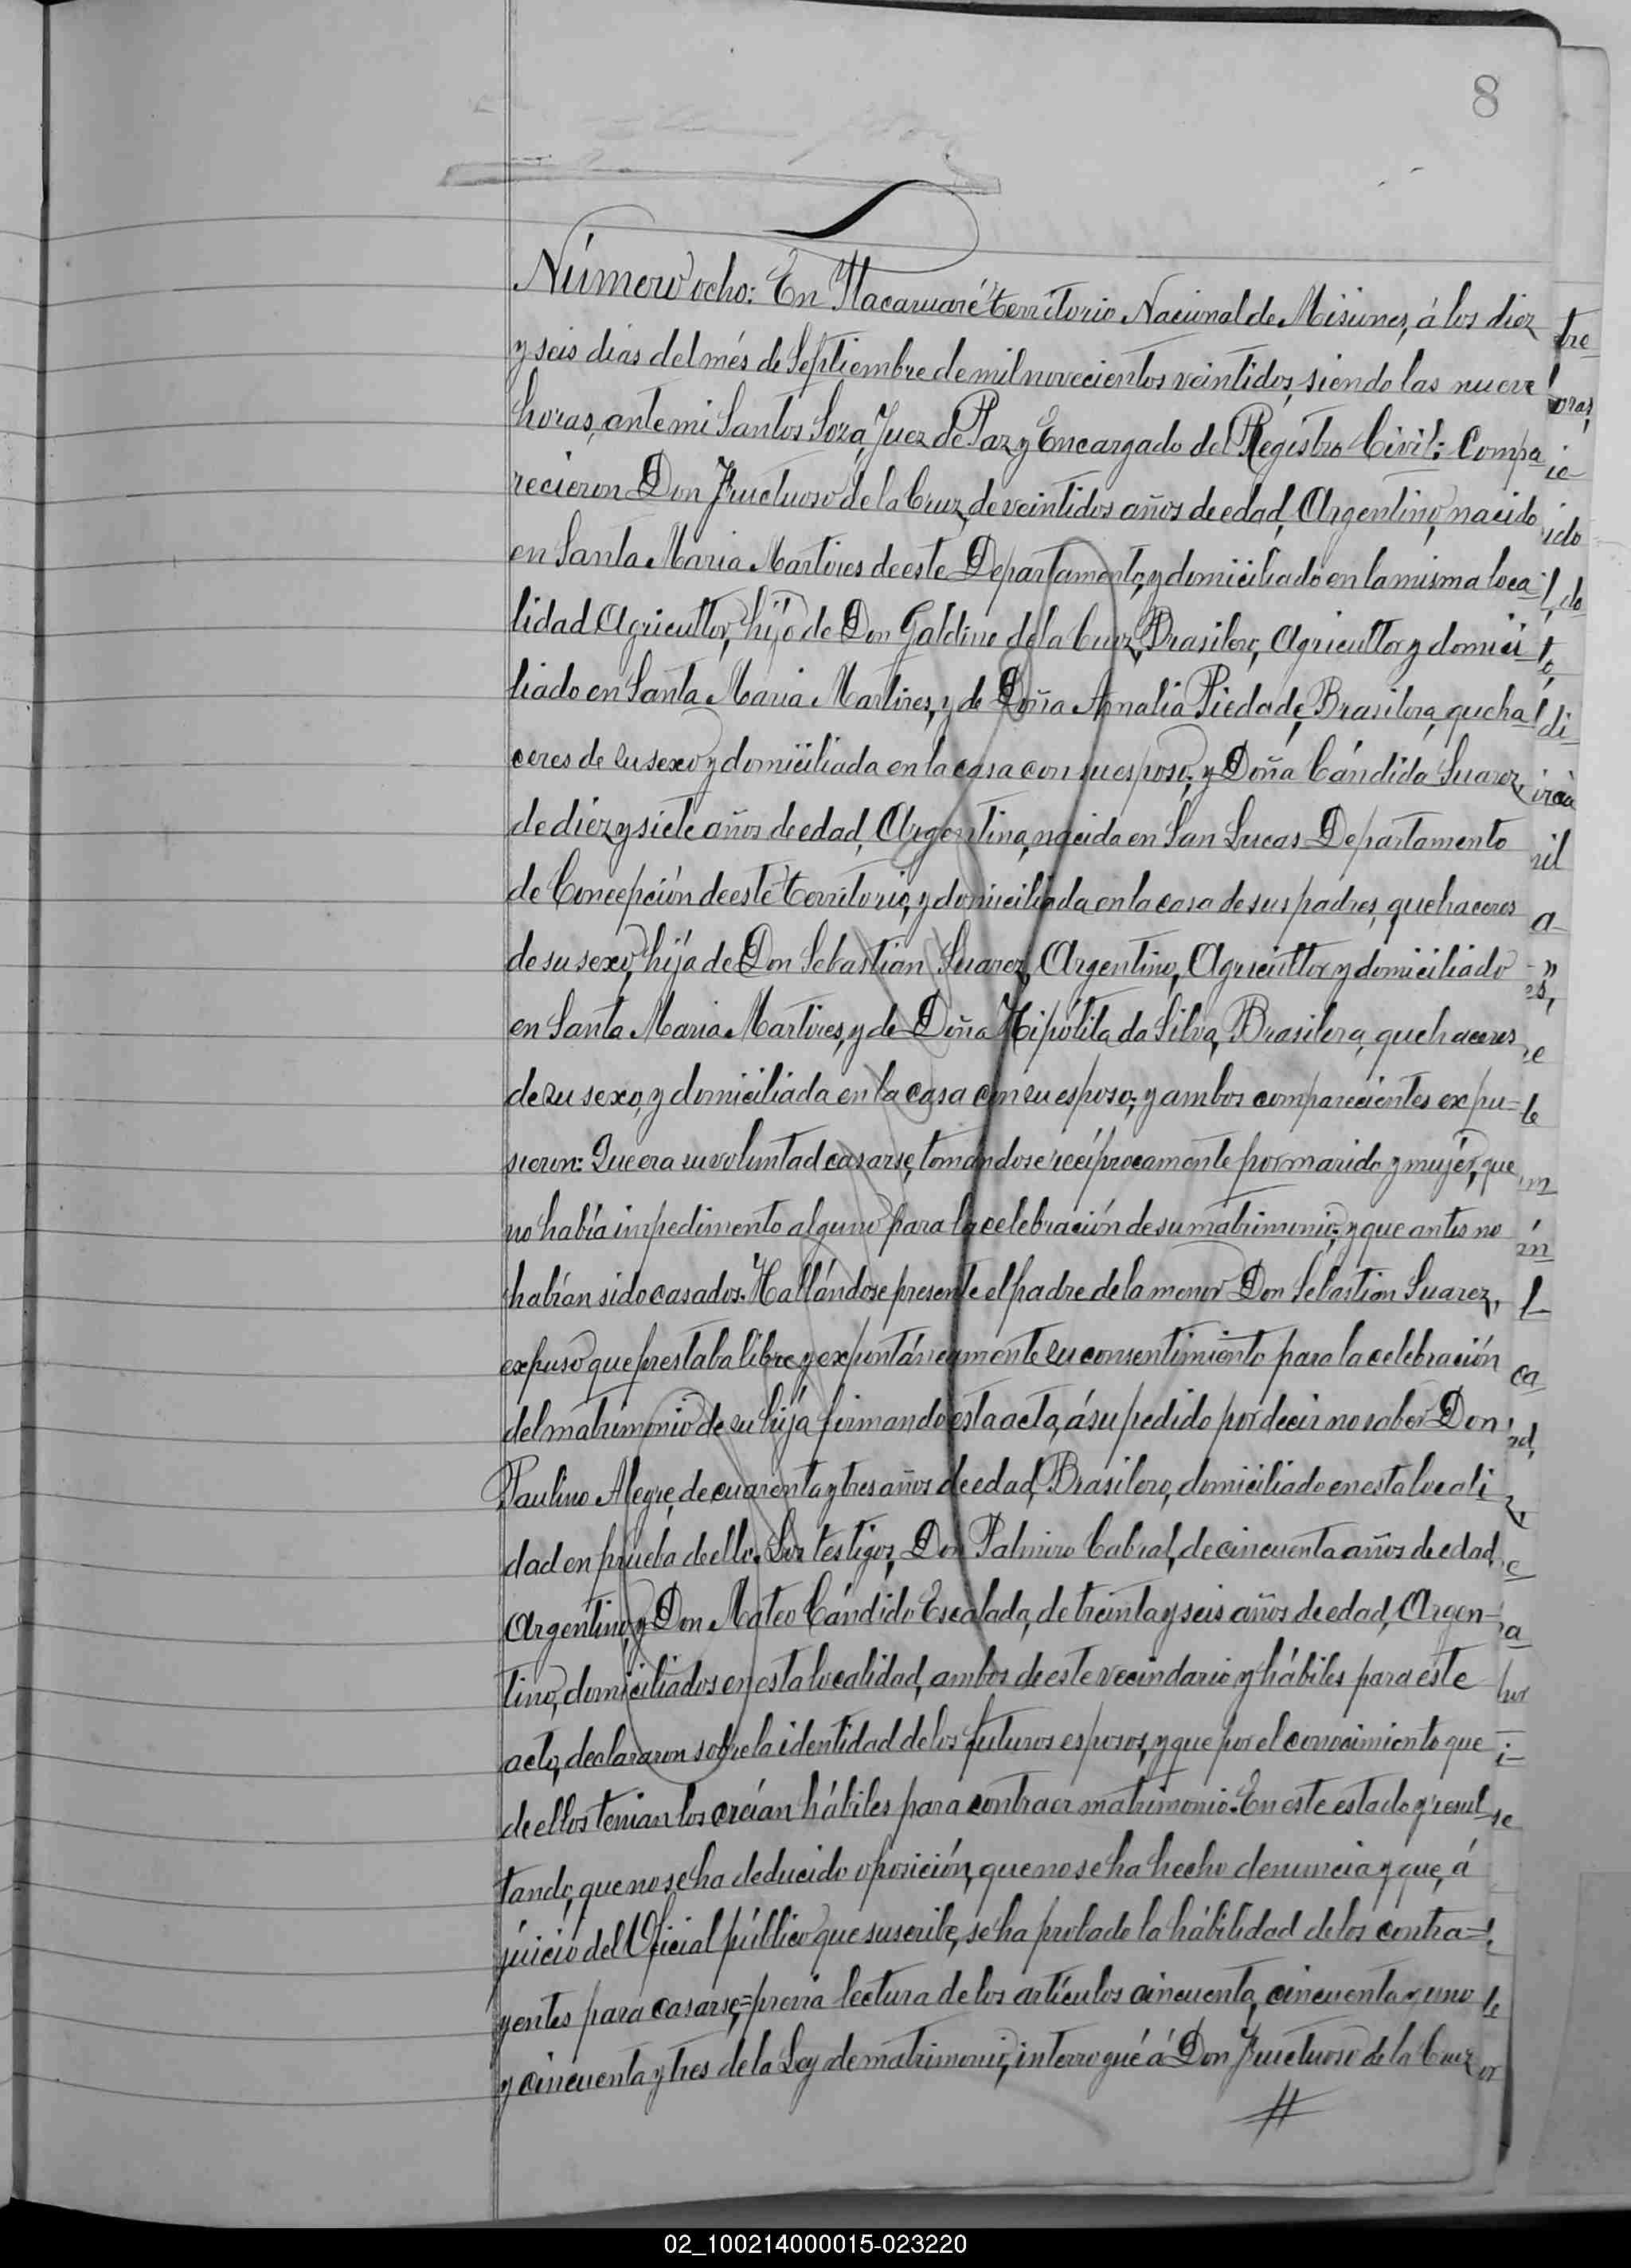 8
Número ocho: En Itacaruaré territorio Nacional de Misiones, á los diez
y seis dias del més de Septiembre de mil novecientos veintidos, siendo las nueve
horas, ante mi Santos Soza, Juez de Paz y Encargado del Registro Civil: Compa
recieron Don Fructuoso de la Cruz, de veintidos años de edad, Argentino, nacido
en Santa Maria Martires de este Departamento, y domiciliado en la misma loca
lidad Agricultor, hijo de Don Galdino de la Cruz, Brasilero, Agricultor y domici
liado en Santa Maria Martires, y de Doña Amalia Piedade, Brasilera, queha
ceres de su sexo y domiciliada en la casa con su esposo; y Doña Cándida Suarez,
de diez y siete años de edad, Argentina, nacida en San Lucas Departamento
de Concepción de este territorio, y domiciliada en la casa de sus padres, quehaceres
de su sexo, hija de Don Sebastian Suarez, Argentino, Agricultor y domiciliado
en Santa Maria Martires, y de Doña Hipólita da Silva, Brasilera, quehaceres
de su sexo, y domiciliada en la casa con su esposo; y ambos comparecientes expu=
sieron: Que era su voluntad casarse, tomandose recíprocamente por marido y mujer, que
no había impedimento alguno para la celebración de su matrimonio; y que antes no
habían sido casados. Hallándose presente el padre de la menor Don Sebastian Suarez,
expuso que prestaba libre y expontáneamente su consentimiento para la celebración
del matrimonio de su hija firmando esta acta, á su pedido por decir no saber Don
Paulino Alegre, de cuarenta y tres años de edad, Brasilero, domiciliado en esta locali
dad en prueba de ello. Los testigos, Don Palmiro Cabral, de cincuenta años de edad,
Argentino, y Don Mateo Cándido Escalada, de treinta y seis años de edad, Argen-
tino, domiciliados en esta localidad, ambos de este vecindario y hábiles para este
acto, declararon sobre la identidad de los futuros esposos, y que por el conocimiento que
de ellos tenian los creían hábiles para contraer matrimonio. En este estado y resul
tando, que no se ha deducido oposición, que no se ha hecho denuncia y que, á
juicio del Oficial público que suscribe, se ha probado la habilidad de los contra=
yentes para casarse,= previa lectura de los artículos cincuenta, cincuenta y uno
y cincuenta y tres de la Ley de matrimonio, interrogué á Don Fructuoso de la Cruz
02_100214000015-023220